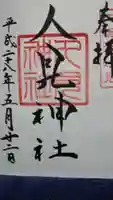 奉拝
人見神社
人見
神社
平成二八年五月廿二日